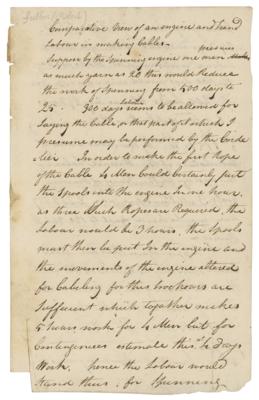 Comparative View of an engine and hand
Labour in making Cables.
presume
Suppose by the Spinning engine one man
as much yarn as 20 this would reduce
the work of Spinning from 500 days to
25. 300 days seems to be allowed for
Laying the Cable, or that part of it which I
presume may be performed by the Corde
lier. In order to make the first Rope
of the Cable 4 Men Could Certainly put
the Spools into the engine in one hour,
as three such Ropes are Required, the
Labour would be 3 hours, the Spools
must then be put in the engine and
the movements of the engine altered
for Cabeling for this two hours are
Sufficient which together makes
5 hours work for 4 Men but for
Contingences estimate this at ¼ days
Work. hence the Labour would
stand thus. for Spinning